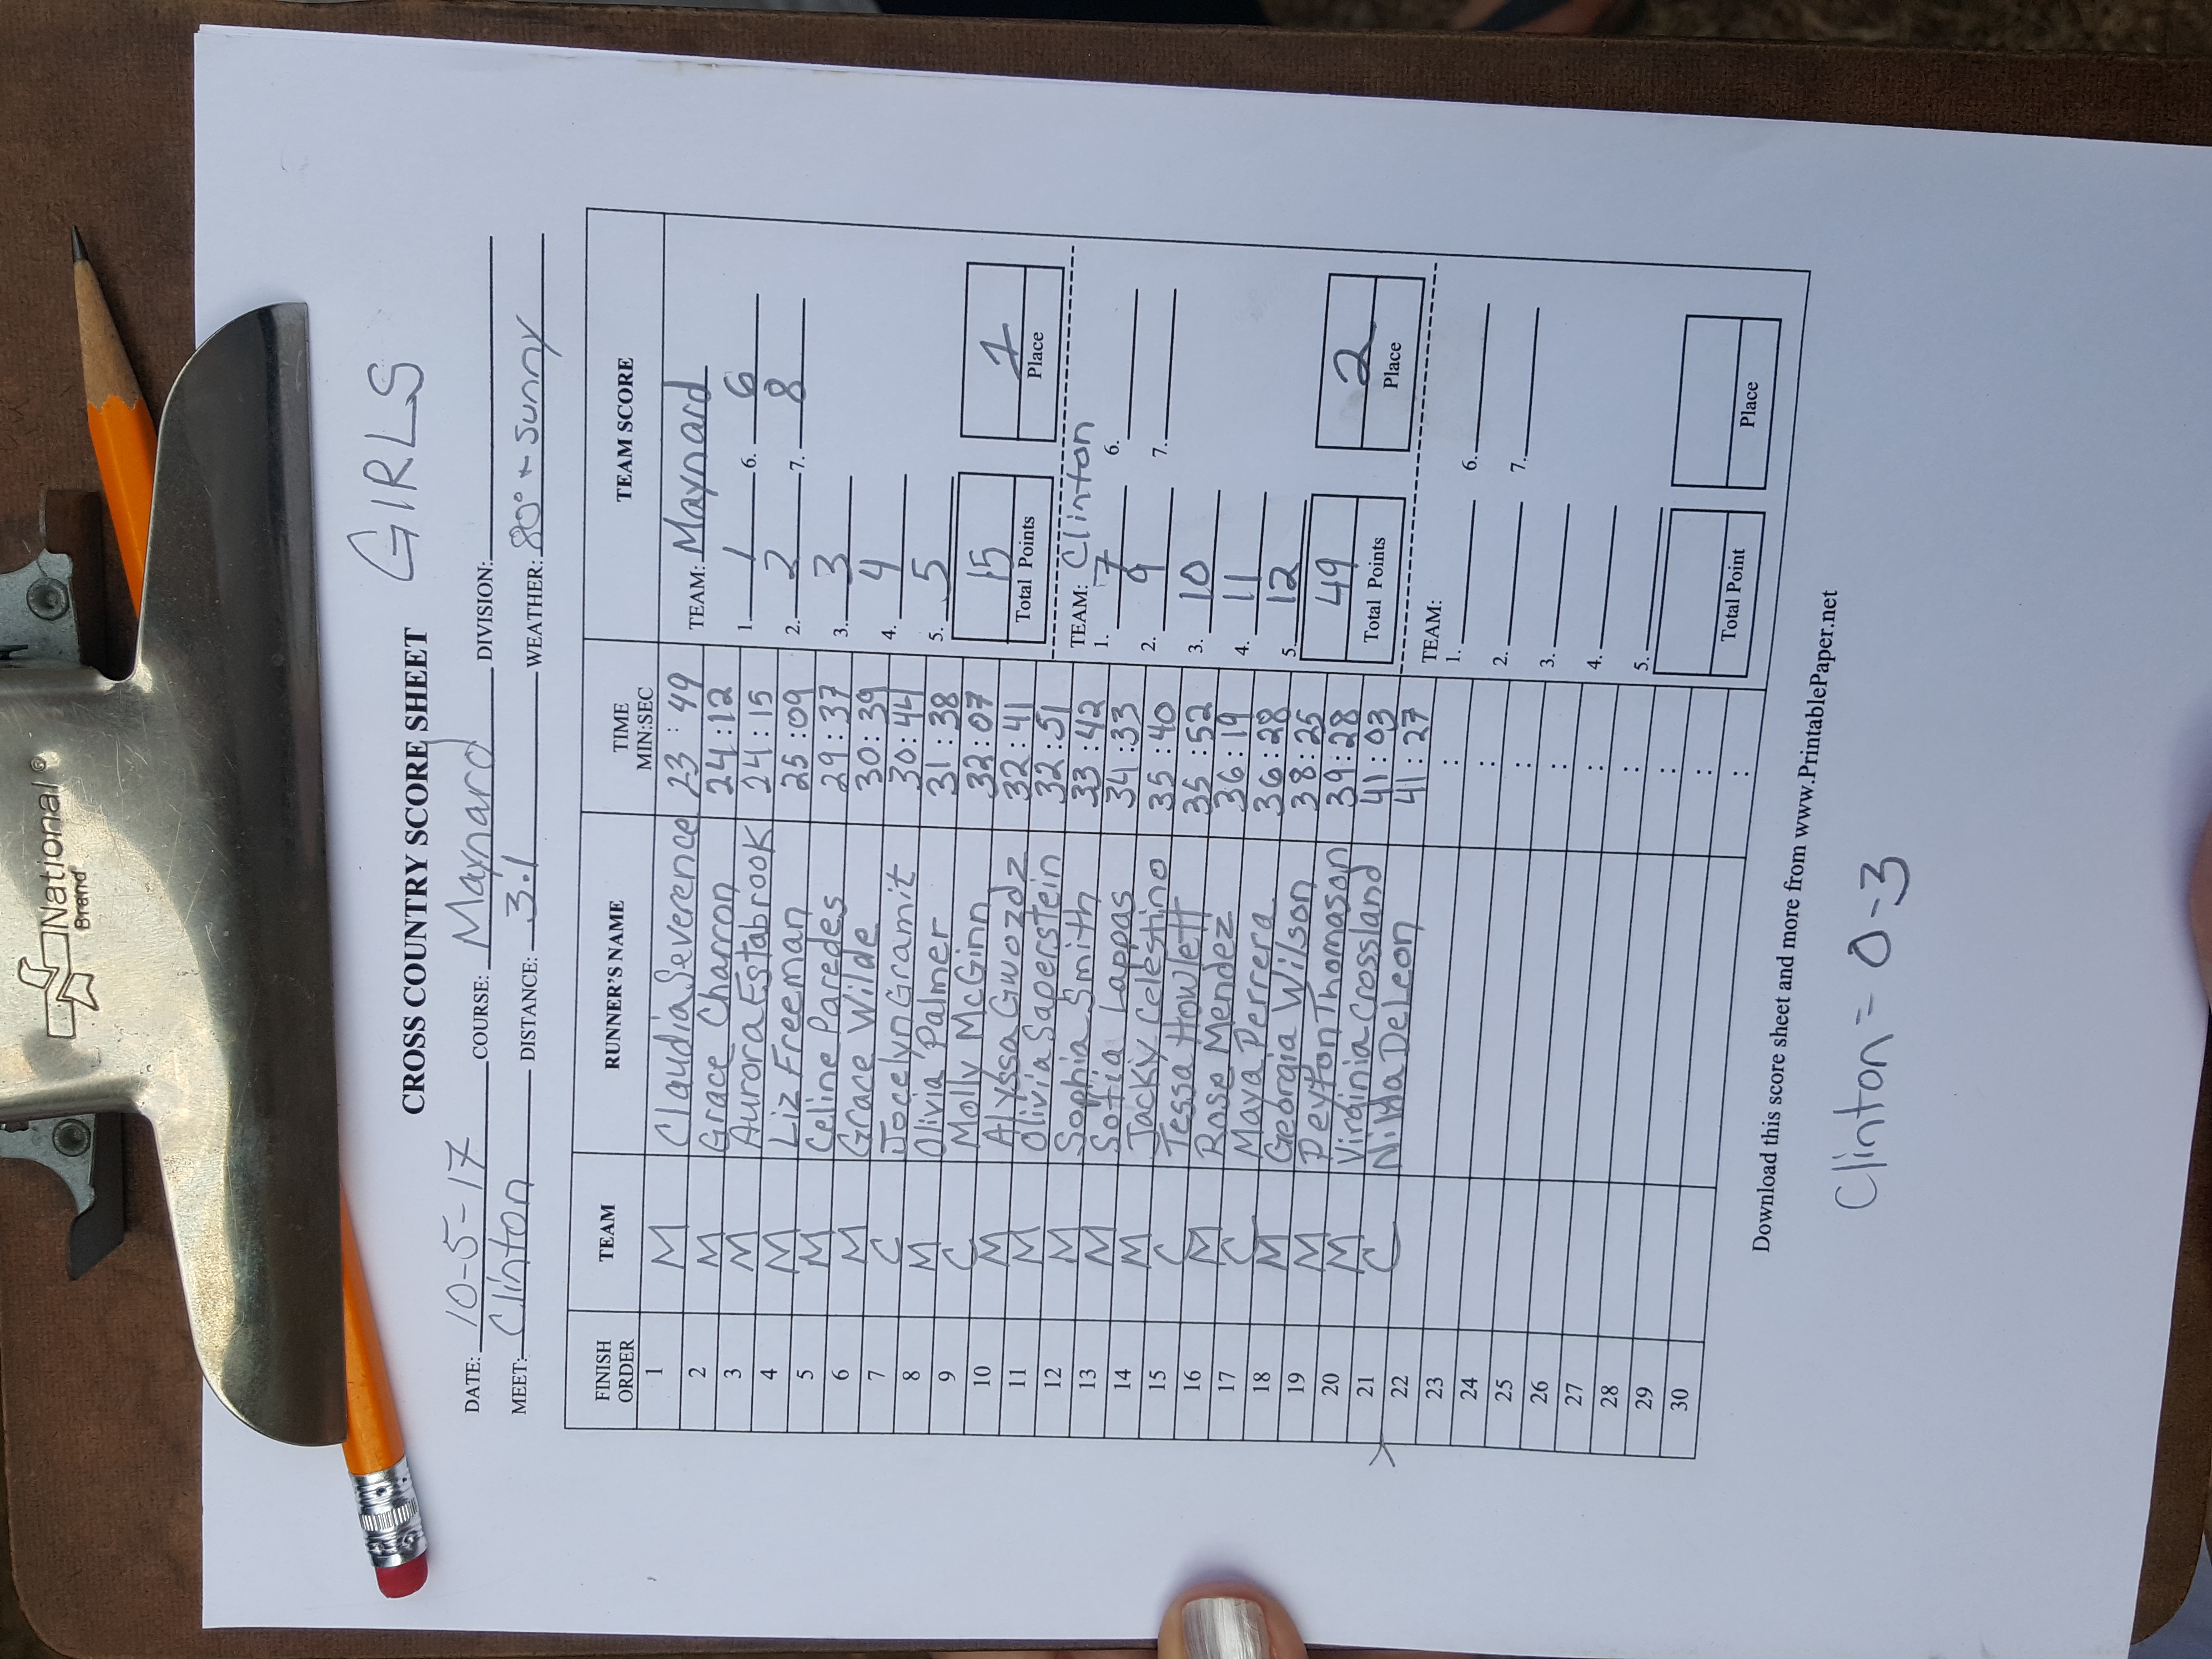 National ®
Brand
GIRLS
CROSS COUNTRY SCORE SHEET
DATE: 10-5-17 COURSE: Maynard DIVISION:
MEET: Clinton DISTANCE: 3.1 WEATHER: 80° + sunny
FINISH ORDER TEAM RUNNER'S NAME TIME MIN:SEC
1 M Claudia Severence 23:49
2 M Grace Charron 24:12
3 M Aurora Estabrook 24:15
4 M Liz Freeman 25:09
5 M Celine Paredes 29:37
6 M Grace Wilde 30:39
7 C Jocelyn Gramit 30:44
8 M Olivia Palmer 31:38
9 C Molly McGinn 32:07
10 M Alyssa Gwozdz 32:41
11 M Olivia Saperstein 32:51
12 M Sophia Smith 33:42
13 M Sofia Lappas 34:33
14 M Jackiy Celestino 35:40
15 C Tessa Howlett 35:52
16 M Rose Mendez 36:19
17 C Maya Perrera 36:28
18 M Georgia Wilson 38:25
19 M Peyton Thomason 39:28
20 M Virginia Crossland 41:03
21 C Nilda DeLeon 41:27
22
23 :
24 :
25 :
26 :
27 :
28 :
29 :
30 :
:
TEAM SCORE
TEAM: Maynard
1. 1 6. 6
2. 2 7. 8
3. 3
4. 4
5. 5
15 1
Total Points Place
TEAM: Clinton
1. 7 6.
2. 9 7.
3. 10
4. 11
5. 12
49 2
Total Points Place
TEAM:
1. 6.
2. 7.
3.
4.
5.
Total Point Place
Download this score sheet and more from www.PrintablePaper.net
Clinton = 0-3